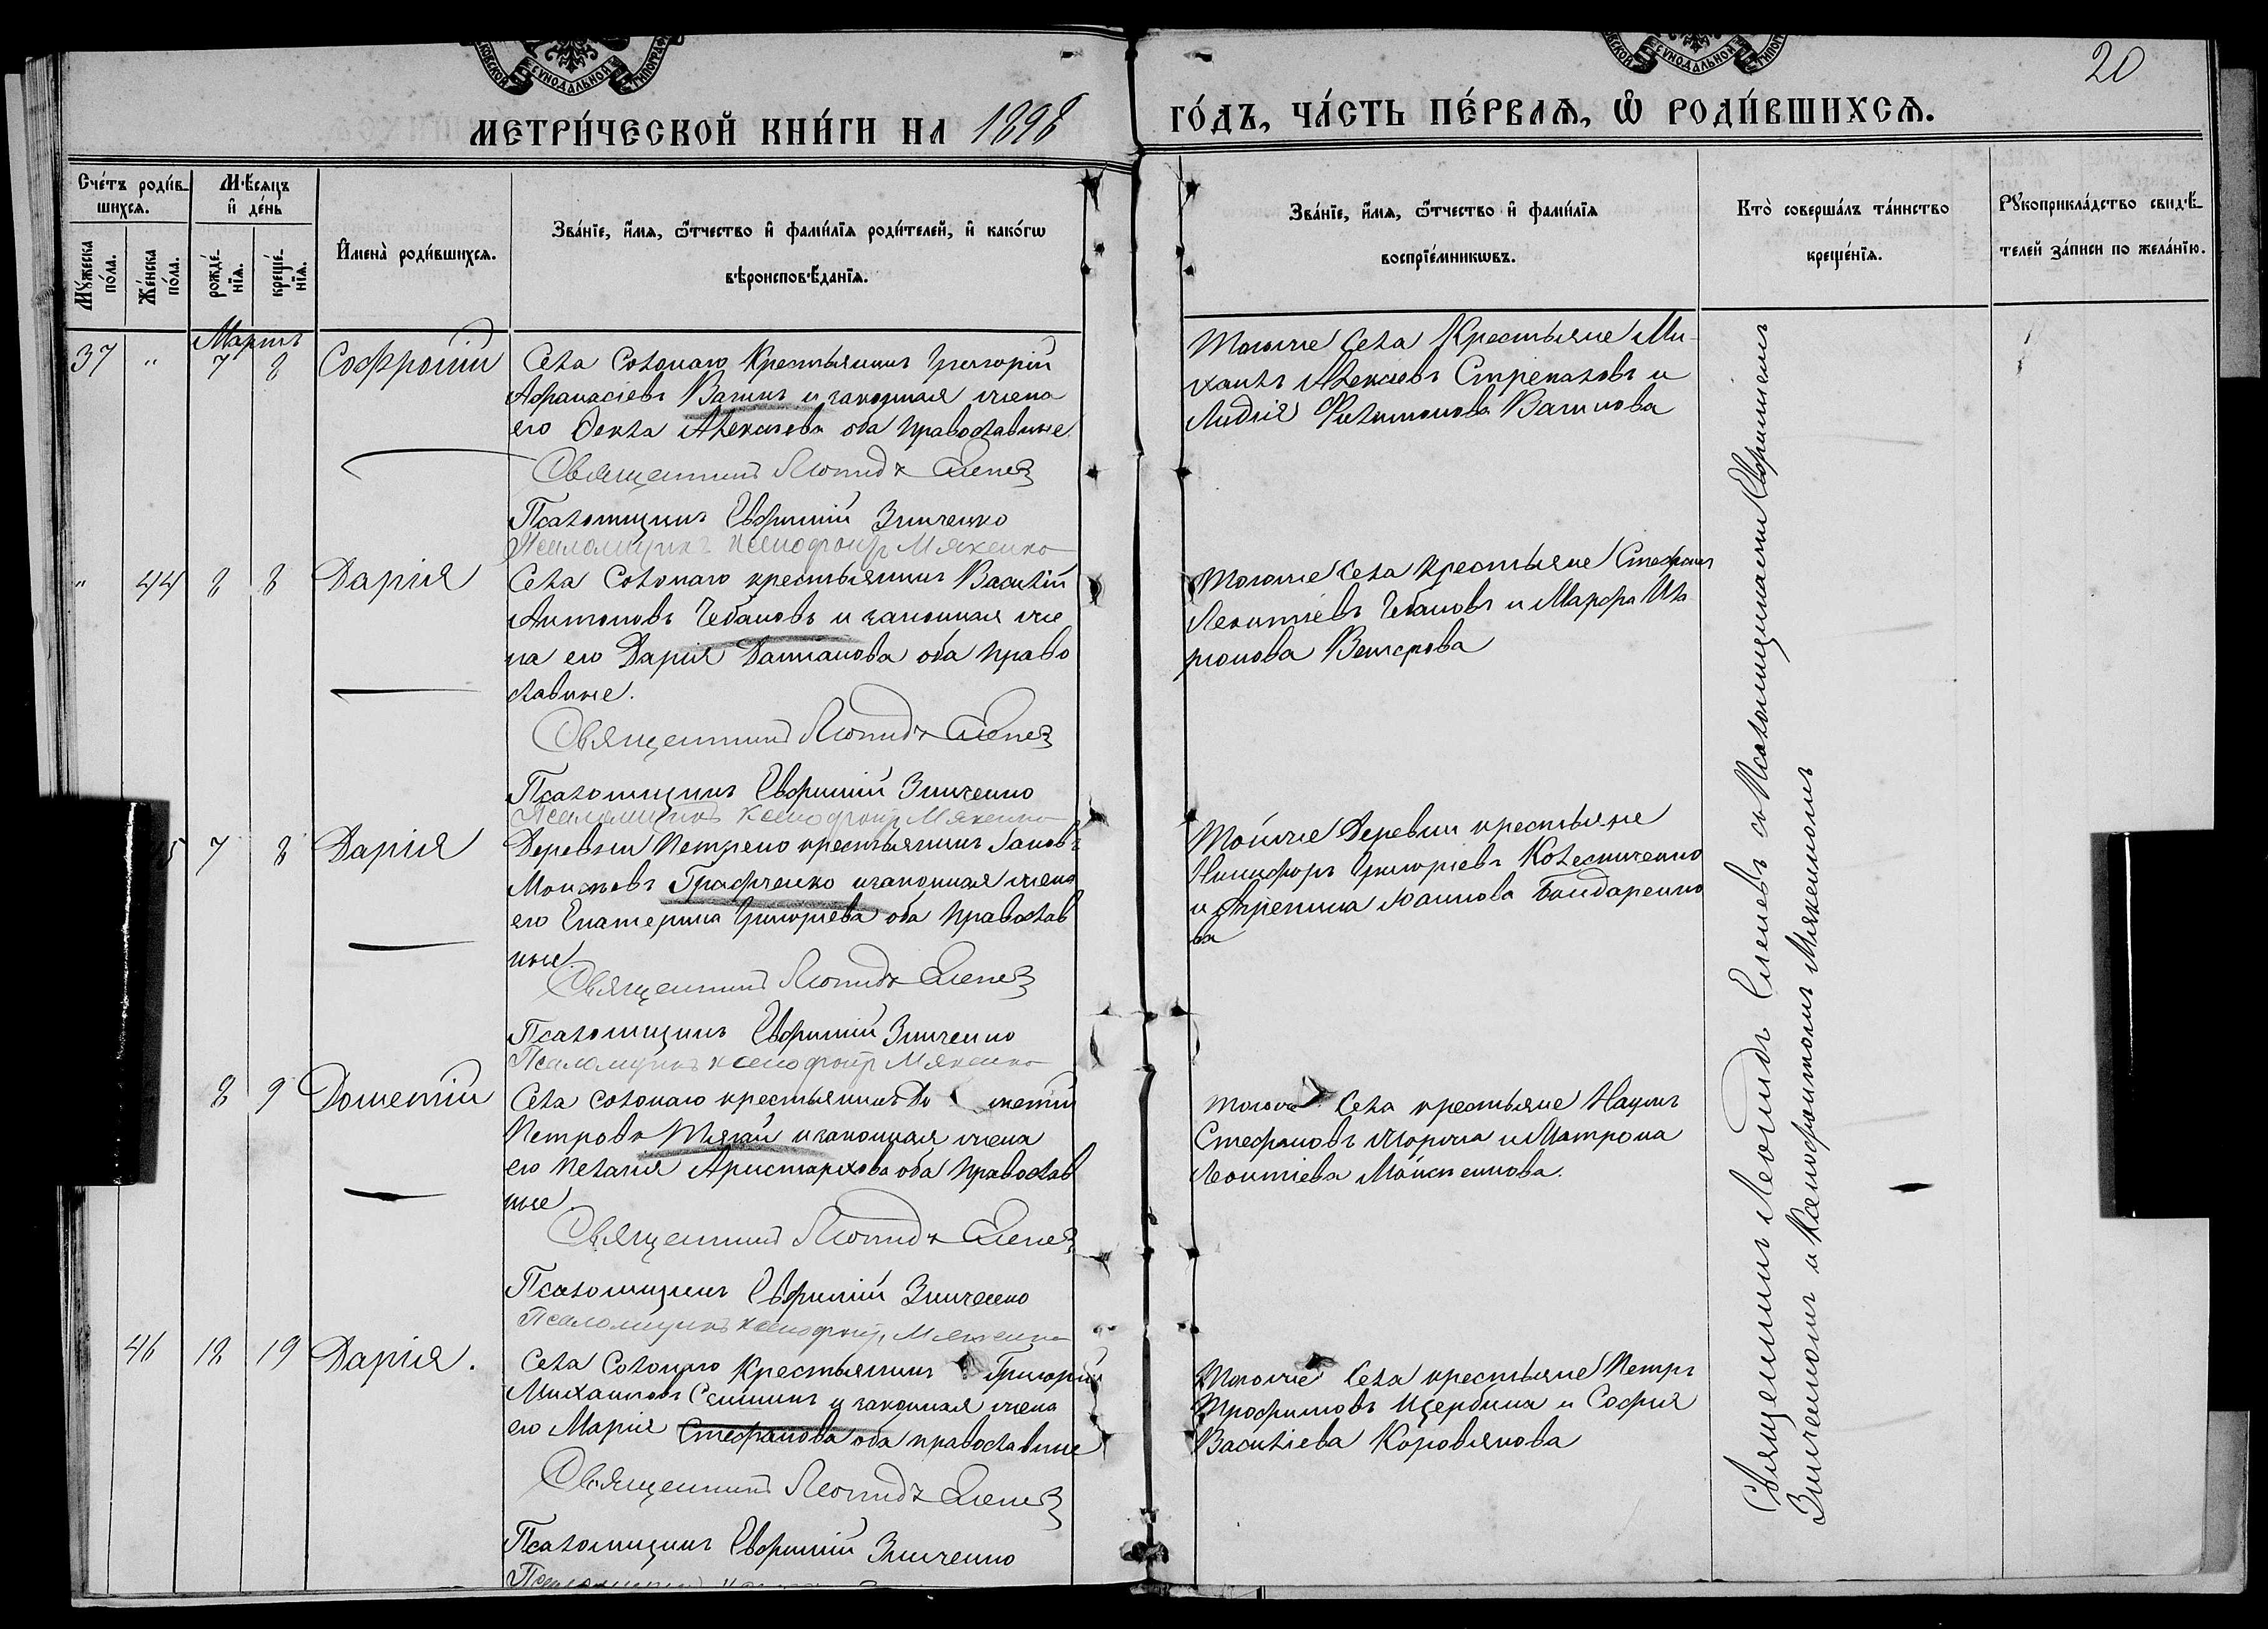 20
МЕТРИ́ЧЕСКОЙ КНИ́ГИ НА 1898
ГО́ДЪ, ЧА́СТЬ ПЕ́РВАѦ, Ѡ҆ РОДИ́ВШИХСѦ.
Сче́тъ роди́в-
шихсѧ.
Мꙋ́жеска по́ла.
Же́нска по́ла.
Мѣ́сѧцъ
и҆ де́нь
рожде́нїѧ.
креще́нїѧ.
И҆мена̀ роди́вшихсѧ.
Зва́нїе, и҆́мѧ, ѻ҆́тчество и҆ фами́лїѧ роди́телей, и҆ како́гѡ
вѣроисповѣ́данїѧ.
Зва́нїе, и҆́мѧ, ѻ҆́тчество и҆ фами́лїѧ
воспрїе́мникѡвъ.
Кто̀ соверша́лъ та́инство
креще́нїѧ.
Рꙋкоприкла́дство свидѣ́-
телей за́писи по жела́нїю.
Мартъ
37 " 7 8 Софроній
Села Солонаго Крестьянинъ Григорій
Афанасіевъ Вагинъ и законная жена
его Ѳекла Алексіева оба православные.
Священникъ Леонидъ
Псаломщикъ Евфимій Зинченко
Псаломщикъ Ксенофонтъ Мякенко
Тогоже Села Крестьяне Ми-
хаилъ Алексіевъ Стрекаловъ и
Лидія Филимонова Вагинова
" 44 8 8 Дарія
Села Солонаго крестьянинъ Василій
Антоновъ Чебановъ и законная же
на его Дарія Даміанова оба право
славные.
Священникъ Леонидъ
Псаломщикъ Евфимій Зинченко
Псаломщикъ Ксенофонтъ Мякенко
Тогоже Села крестьяне Стефанъ
Леонтіевъ Чебановъ и Марфа Ила
ріонова
5 7 8 Дарія
Деревни Петрено крестьянинъ Іаковъ
Моисеевъ Графченко и законная жена
его Екатерина Григоріева оба православ
ные.
Священникъ Леонидъ
Псаломщикъ Евфимій Зинченко
Псаломщикъ Ксенофонтъ Мякенко
Тойже Деревни крестьяне
Никифоръ Григоріевъ Колесниченко
и Агрепина Іоаннова Бондаренко
ва
8 9 Дометій
Села Солонаго крестьянинъ До метій
Петровъ Тягай и законная жена
его Пелагія Аристархова оба Православ
ные.
Священникъ Леонидъ
Псаломщикъ Евфимій Зинченко
Псаломщикъ Ксенофонтъ Мякенко
Тогоже Села крестьяне Наумъ
Стефановъ и Матрона
Леонтіева
46 18 19 Дарія.
Села Солонаго Крестьянинъ Григорій
Михаиловъ и законная жена
его Марія Стефанова оба православные
Священникъ Леонидъ
Псаломщикъ Евфимій Зинченко
Тогоже Села крестьяне Петръ
Трофимовъ Щербина и Софія
Василіева Коровякова
Священникъ Леонидъ съ Псаломщиками Евфиміемъ
Зинченкомъ и Ксенофонтомъ Мякенкомъ